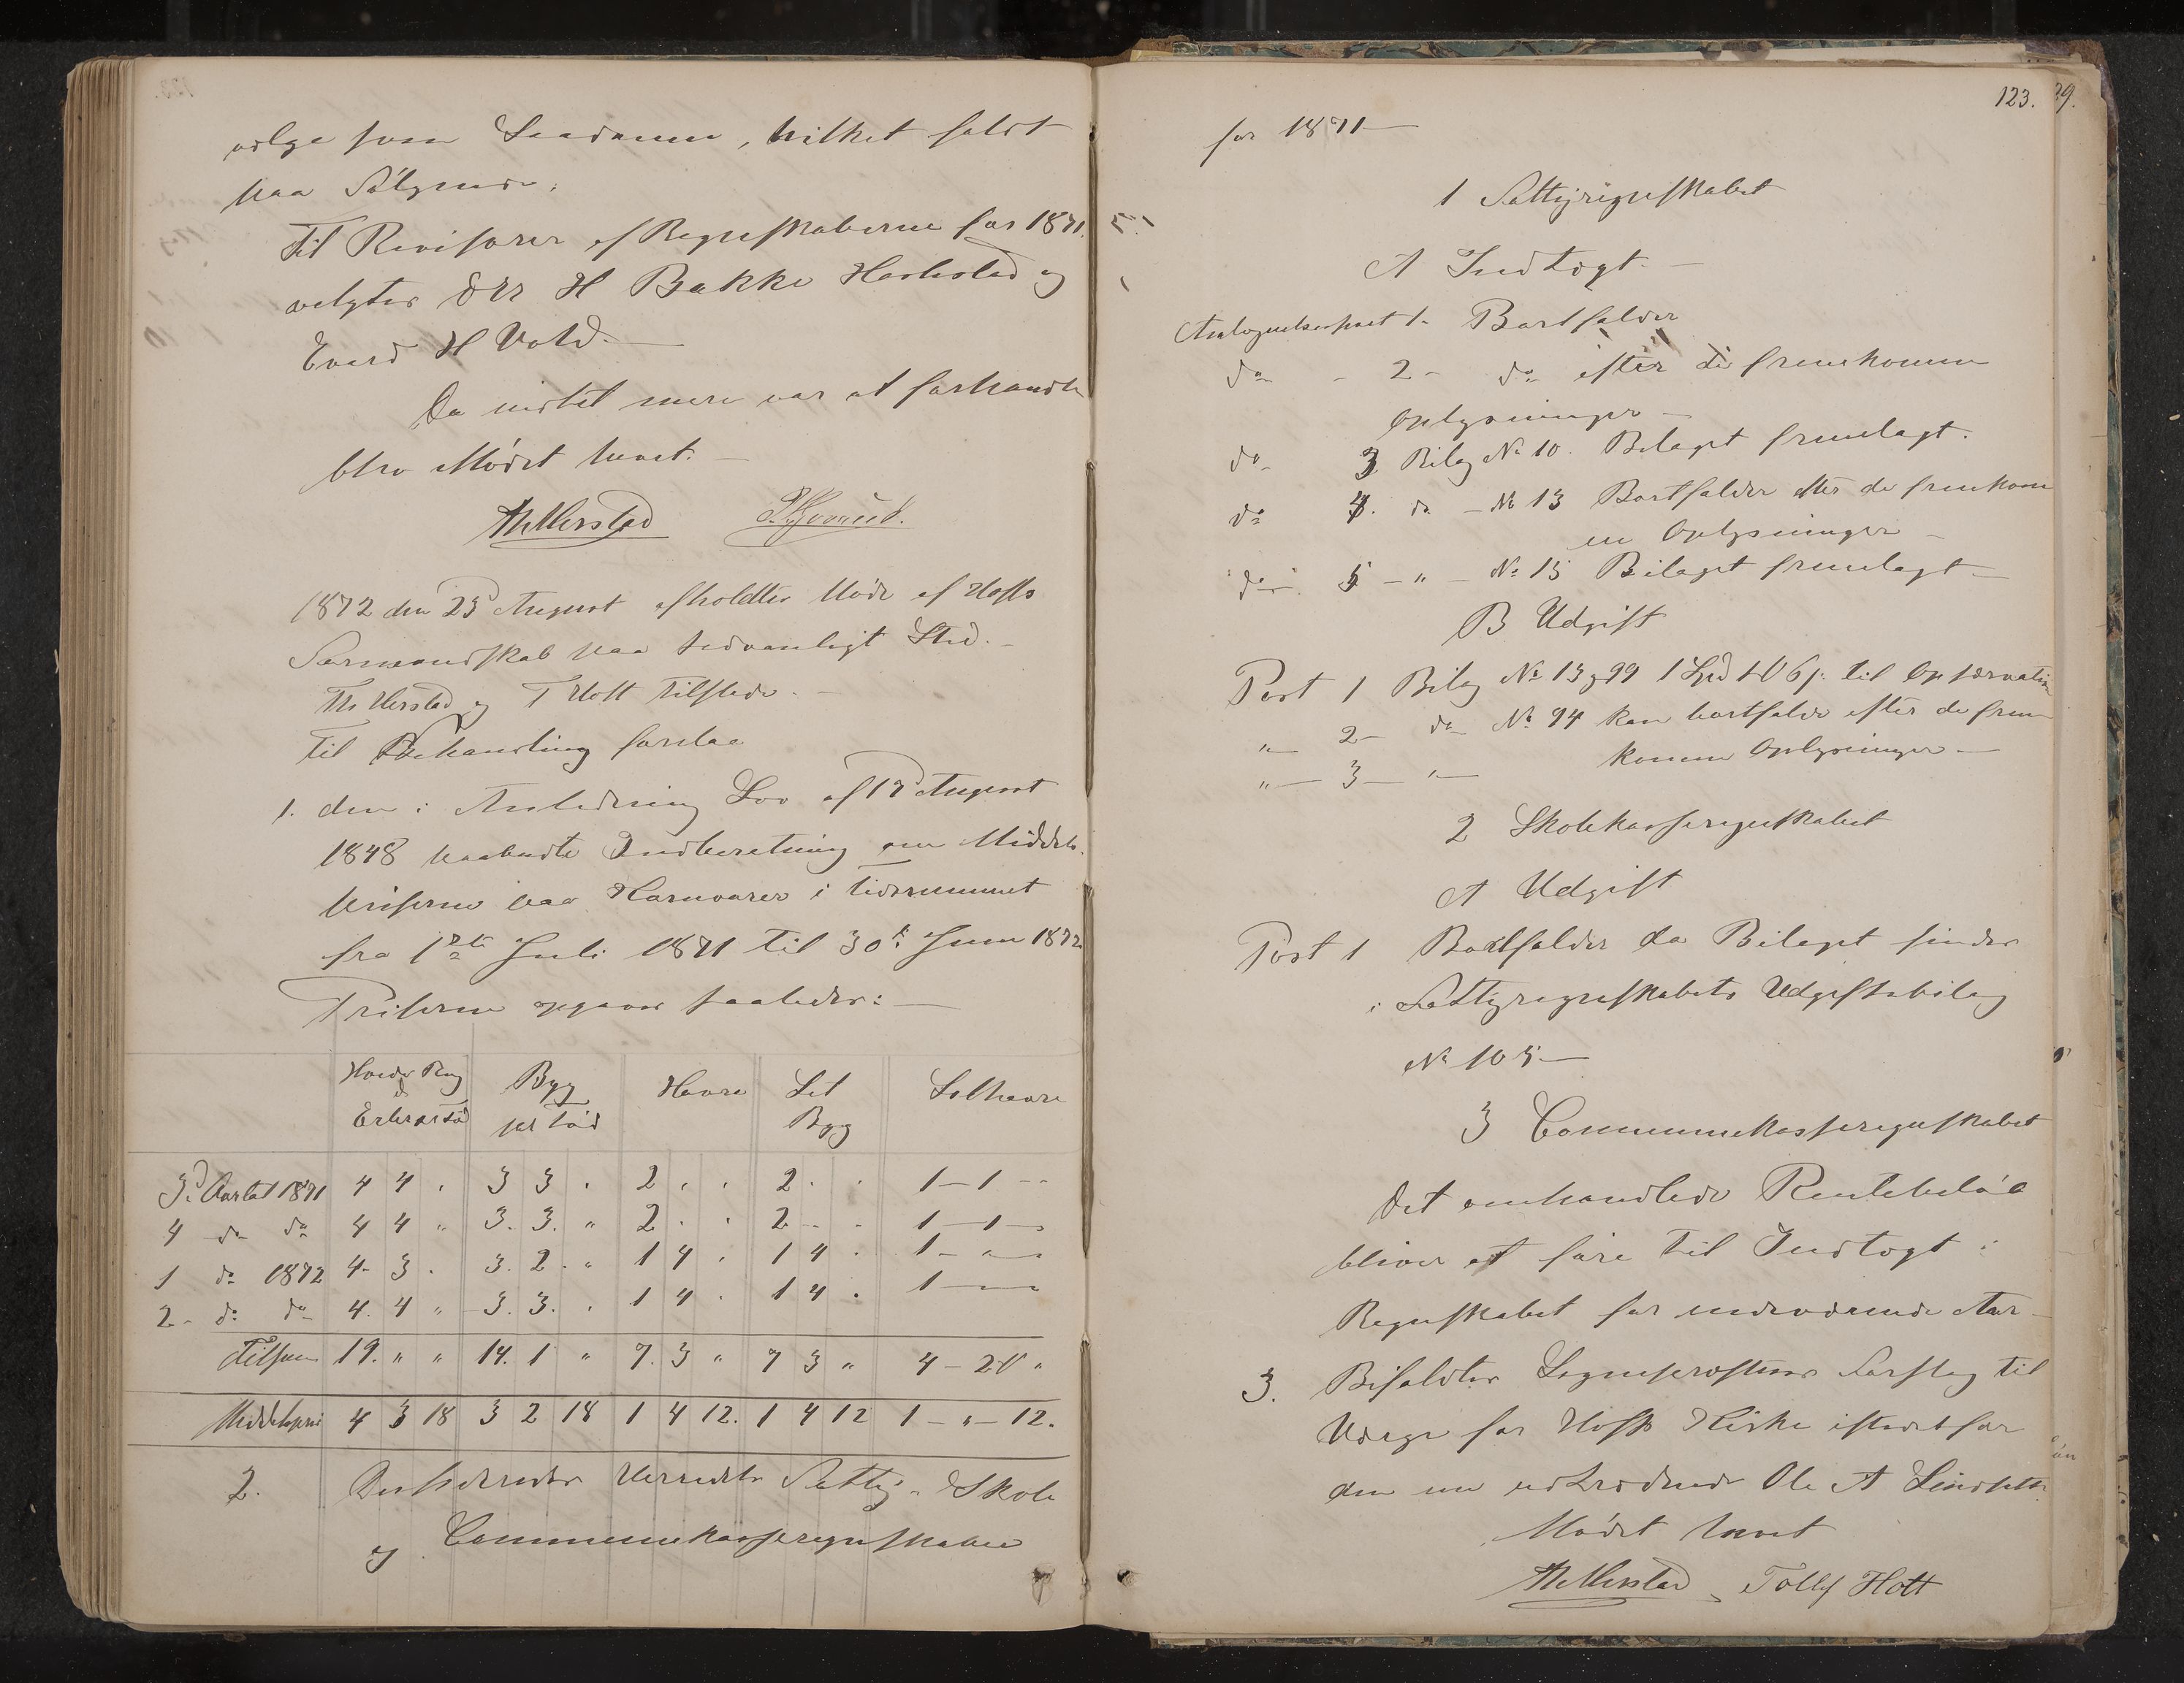 vælge som Saadanne, hvilket faldt
paa Følgende:
Til Revisorer af Regnskaberne for 1871
valgtes d'Hr H Bakke Harlestad og
Evard H Vold.—
Da intet mere var at forhandle
blev Mødet hævet.—
1872 den 23d August afholdtes Møde af Hofls
Formandskab paa sedvanligt Sted.—
Th Uerstad og T Hoff tilstede.—
Til Behandling forelaa
1. den i Anledning Lov af 17d August
1848 paabudte Indberetning om Middel-
priserne paa Kornvarer i Tidsrummet
fra 1ste Juli 1871 til 30te Juni 1872
Priserne opgaves saaledes:—
Hvede Rug Byg Havre Let Lethavre
Erter pr Td pr Tød Byg
3d Qvartal 1871 4 4 " 3 3 " 2 " " 2 " " 1–1 –
4 do do 4 4 " 3. 3. " 2 " " 2 " " 1–1–
1 do 1872 4. 3. 3. 2. " 1 4 " 1 4 " 1 – " –
2 do do 4. 4 " 3. 3. " 1 4 " 1 4 " 1 –
Tilsam 19. " " 14. 1 " 7. 3 " 7 3 " 4 – 2 "
Middelpris 4 3 18 3 2 18 1 4 12. 1 4 12 1 – " – 12.
2. Herredets Fattig- Skole
og Communekasseregnskaber
123.
29.
for 1871—
1 Fattigregnskabet
A Indtægt.—
Antegnelsespost 1. Bortfalder
do - 2 - do efter de fremkomne
Oplysninger—
do 3. Bilag No 10. Bilaget fremlagt.
do 4. do – No 13 Bortfalder efter de fremkom
ne Oplysninger—
do 5 – " – No 15 Bilaget fremlagt—
B Udgift
Post 1 Bilag No 13 og 99 1 Spd til Observation
" – 2 – do No 94 kan bortfalde efter de frem
komne Oplysninger—
" – 3 – " –
2 Skolekasseregnskabet
A Udgift
Post 1 Bortfalder da Bilaget findes
i Fattigregnskabets Udgiftsbilag
No 105—
3 Communekasseregnskabet
Det omhandlede Rentebeløb
bliver at føre til Indtægt i
Regnskabet for indeværende Aar—
3. Bifaldtes Sogneprestens Forslag til
Værge for Hoffs Kirke istedetfor
den nu udtrædende Ole A Lindset
Mødet hævet
Th Uerstad Tollef Hoff